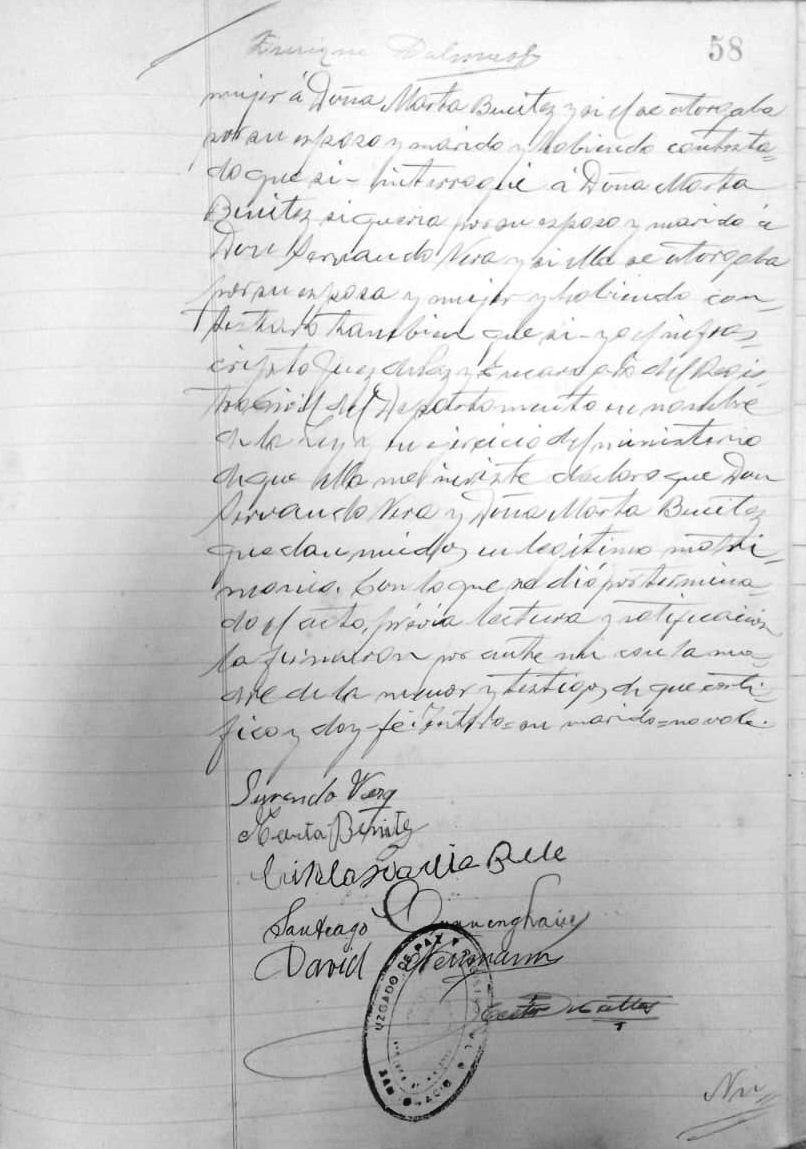 Enrique
58
mujer á Doña Marta Benitez y si él se otorgaba
por su esposo y marido y habiendo contesta=
do que si – interrogué á Doña Marta
Benitez si queria por su esposo y marido á
Don Servando Vera y si ella se otorgaba
por su esposa y mujer y habiendo con-
testado tambien que si – yo el infras-
cripto Juez de Paz y Encargado del Regis-
tro Civil del Departamento en nombre
de la Ley y en ejercicio del ministerio
de que ella me inviste declaro que Don
Servando Vera y Doña Marta Benitez
quedan unidos en legitimo matri-
monio. Con lo que se dió por termina-
do el acto, prévia lectura y ratificacion
la firmaron por ante mi con la ma-
dre de la menor y testigos, de que certi-
fico y doy fé = su marido = no vale.
Servando Vera
Marta Benitez
Santiago
David Neumann
JUZGADO DE PAZ
Nu